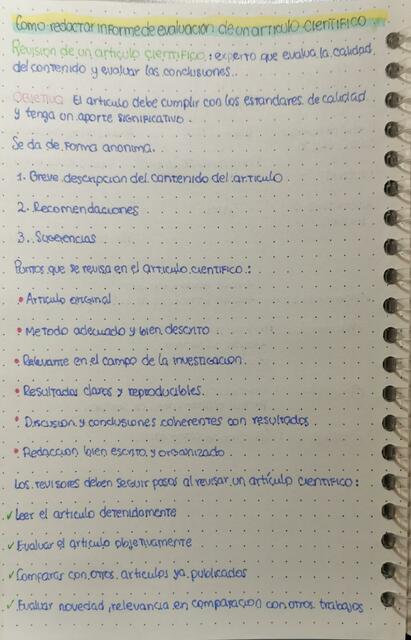 Como redactar informe de evaluación de un articulo CIENTIFICO
Revision de un articulo cientifico: experto que evalua la calidad
del contenido y evaluar las conclusiones.
OBJETIVO El articulo debe cumplir con los estandares de calidad
y tenga un aporte significativo.
Se da de forma anonima.
1. Breve descripcion del contenido del articulo.
2. Recomendaciones
3. Sugerencias
Puntos que se revisa en el articulo cientifico:
• Articulo original
• Metodo adecuado y bien descrito
• Relevante en el campo de la investigacion.
• Resultados claros y reproducibles.
• Discusion y conclusiones coherentes con resultados
• Redaccion bien escrito y organizado
Los revisores deben seguir pasos al revisar un artículo cientifico:
✓ Leer el articulo detenidamente
✓ Evaluar el articulo objetivamente
✓ Comparar con otros articulos ya publicados
✓ Evaluar novedad, relevancia en comparacion con otros trabajos